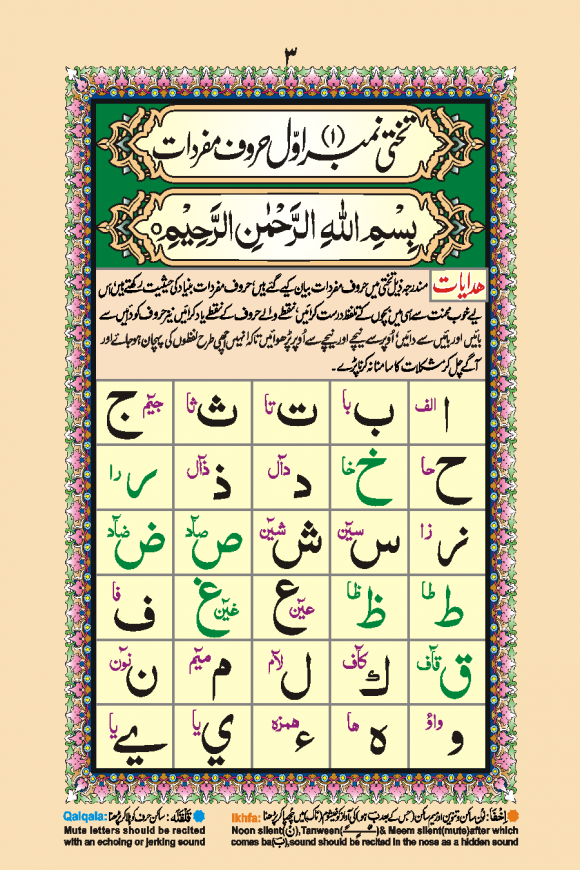 ۳
تختی نمبر اوّل (۱) حروف مفردات
بِسْمِ اللهِ الرَّحْمٰنِ الرَّحِيْمِ
ہدایات مندرجہ ذیل تختی میں حروف مفردات بیان کیے گئے ہیں۔ حروف مفردات بنیاد کی حیثیت رکھتے ہیں اس
لیے خوب محنت سے اسی میں بچوں کے تلفظ درست کرائیں نقطے والے حروف کے نقطے یاد کرائیں نیز حروف کو دائیں سے
بائیں اور بائیں سے دائیں، اُوپر سے نیچے اور نیچے سے اُوپر پڑھوائیں تاکہ انہیں اچھی طرح لفظوں کی پہچان ہو جائے اور
آگے چل کر مشکلات کا سامنا نہ کرنا پڑے۔
ا الف ب با ت تا ث ثا ج جيٓم
ح حا خ خا د دآل ذ ذآل ر را
ز زا س سيٓن ش شيٓن ص صآد ض ضآد
ط طا ظ ظا ع عيٓن غ غيٓن ف فا
ق قآف ك كآف ل لآم م ميٓم ن نوٓن
و وآؤ ه ها ء همزه ي يا ے يا
اِخْفَا: نون ساکن و تنوین اور میم ساکن (جس کے بعد ب ہو) کی آواز کو خیشوم (ناک) میں چھپا کر پڑھنا Ikhfa:
Noon silent(نْ),Tanween(ـًـٍـٌ)& Meem silent(mute)after which
comes ba(ب),sound should be recited in the nose as a hidden sound
قَلْقَلَه: ساکن حرف کو ہلا کر پڑھنا Qalqala:
Mute letters should be recited
with an echoing or jerking sound